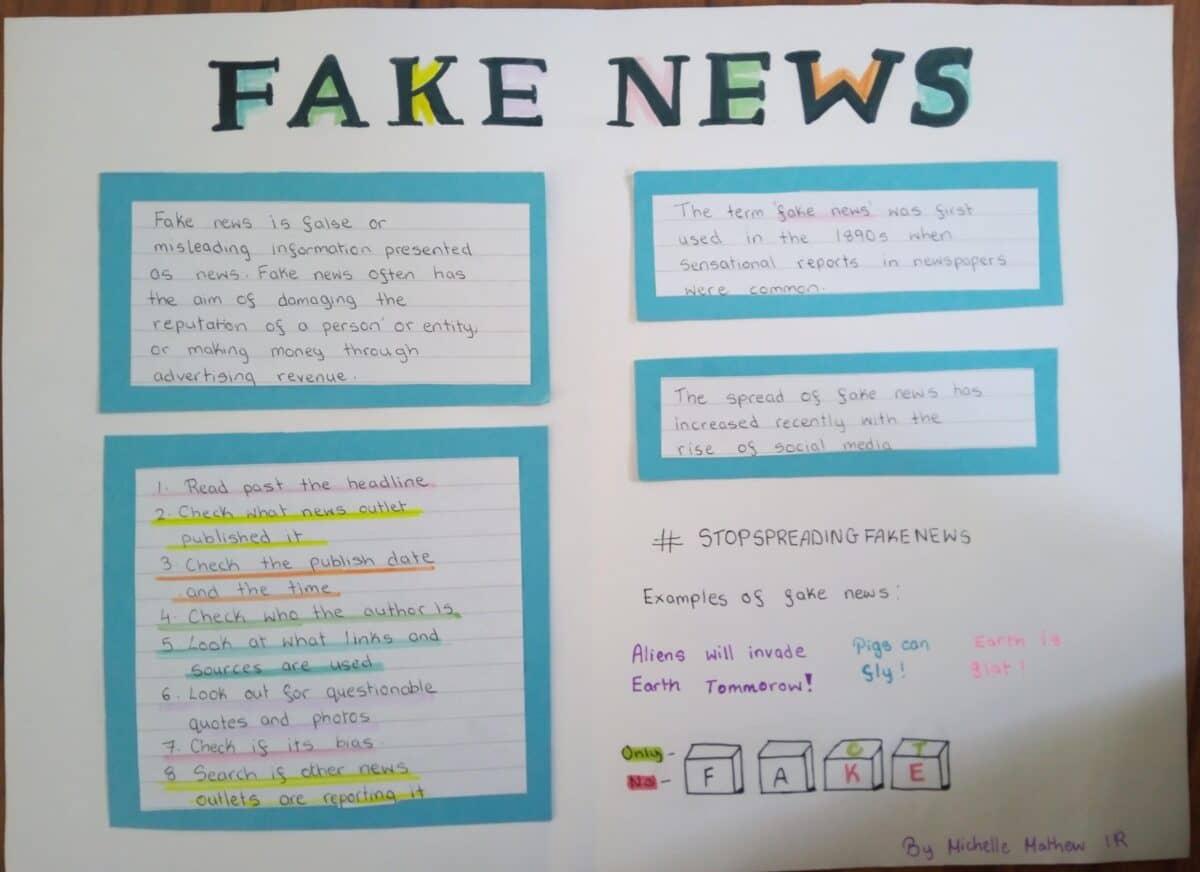 FAKE NEWS
Fake news is false or
misleading information presented
as news. Fake news often has
the aim of damaging the
reputation of a person or entity,
or making money through
advertising revenue.
1. Read past the headline
2. Check what news outlet
published it
3. Check the publish date
and the time
4. Check who the author is
5 Look at what links and
sources are used
6. Look out for questionable
quotes and photos
7. Check if its bias
8 Search if other news
outlets are reporting it
The term 'fake news' was first
used in the 1890s when
sensational reports in newspapers
were common.
The spread of fake news has
increased recently with the
rise of social media
# STOPSPREADINGFAKENEWS
Examples of fake news:
Aliens will invade
Earth Tommorow!
Pigs can
fly!
Earth is
flat!
Only - C T
No - F A K E
By Michelle Mathew 1R